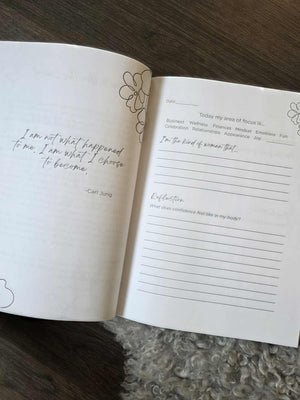 I am not what happened
to me. I am what I choose
to become.
-Carl Jung
Date
Today my area of focus is...
Business Wellness Finances Mindset Emotions Fun
Celebration Relationships Appearance Joy
I'm the kind of woman that...
Reflection
What does confidence feel like in my body?